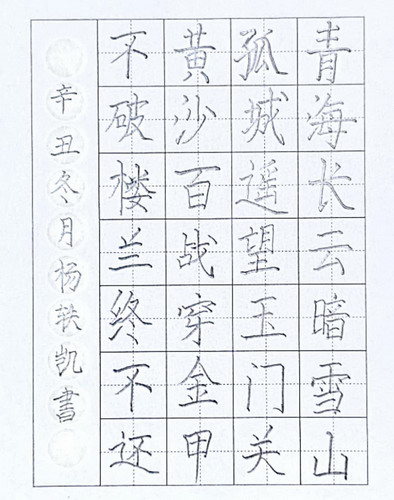 青海长云暗雪山
孤城遥望玉门关
黄沙百战穿金甲
不破楼兰终不还
辛丑冬月杨轶凯書